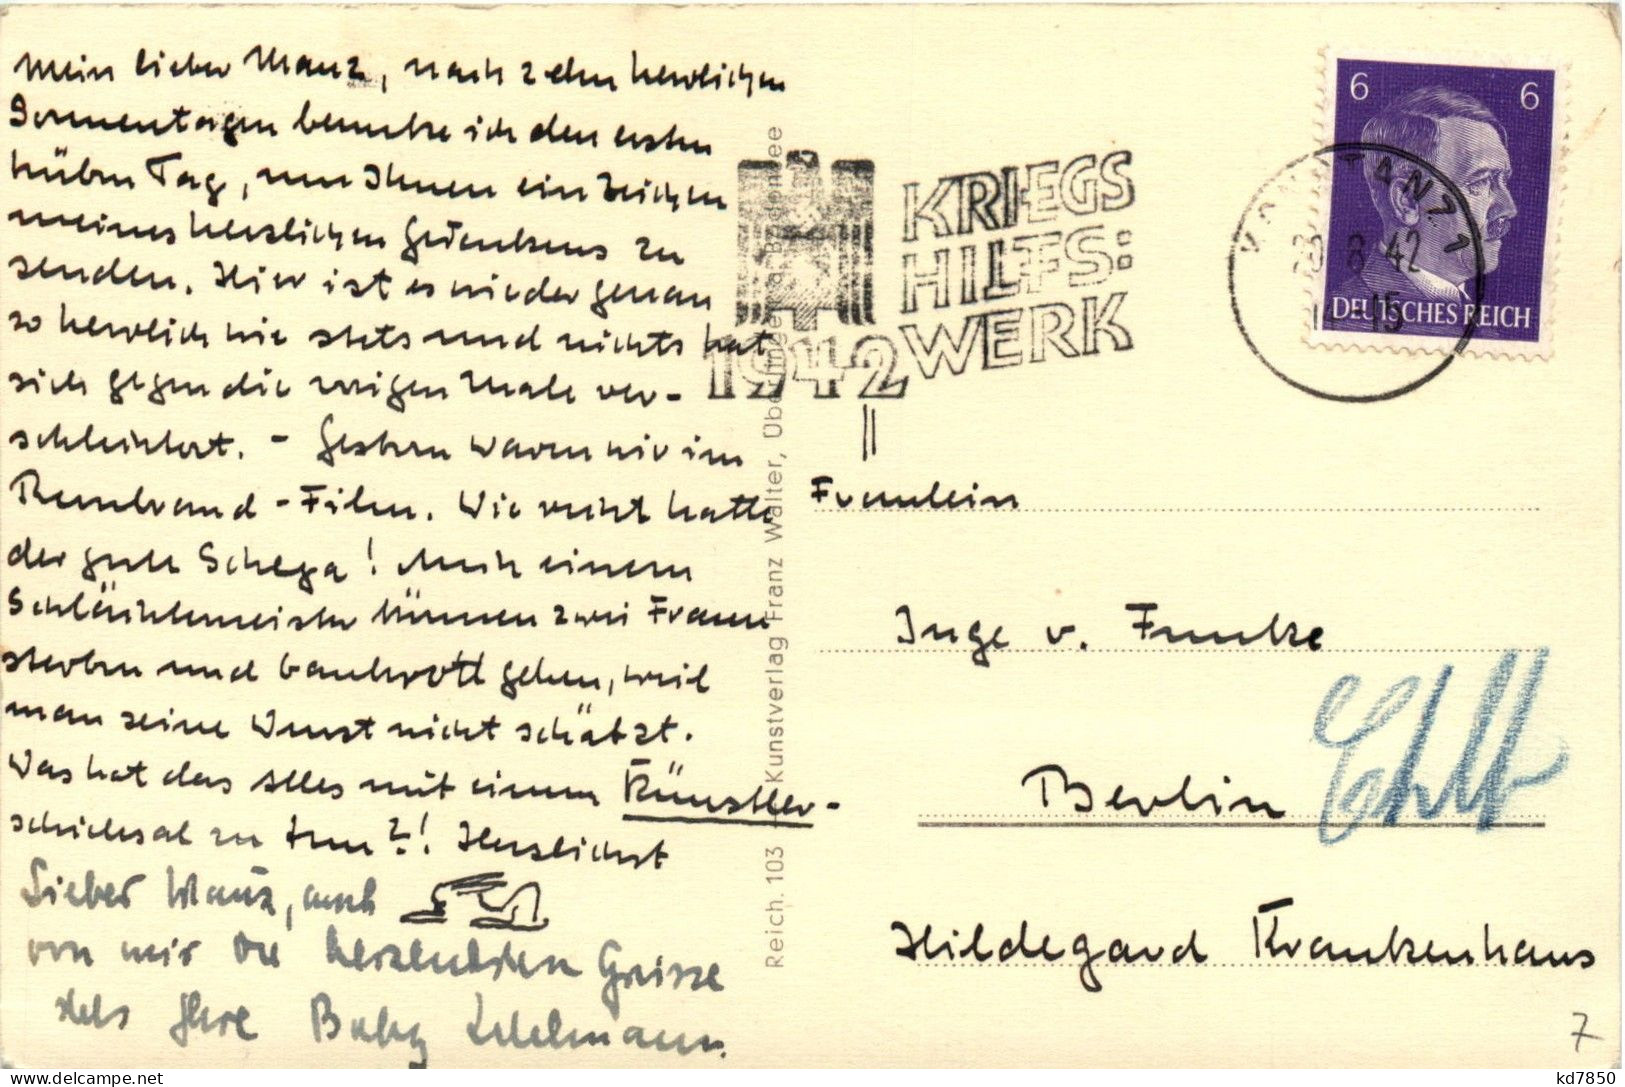 Mein lieber Manz, nach zehn herrlichen
Sonnentagen benutze ich den ersten
trüben Tag, um Ihnen ein Zeichen
meines herzlichen Gedenkens zu
senden. Hier ist es wieder genau
so herrlich wie stets und nichts hat
sich gegen die vorigen Male ver-
schlechtert. - Gestern waren wir im
Rembrand-Film. Wie recht hatte
der gute Schega! Auch einem
können zwei Frauen
sterben und bankrott gehen, weil
man seine Kunst nicht schätzt.
Was hat das Alles mit einem Künstler-
schicksal zu tun?! Herzlichst
Lieber Manz, auch
von mir die herzlichsten Grüsse
stets Ihre Baby Edelmann.
Reich. 103 Kunstverlag Franz Walter, Überlingen a. Bodensee
KRIEGS
HILFS:
WERK
1942
KONSTANZ 1
8 42
15
6 6
DEUTSCHES REICH
Fräulein
Inge v. Funke
Berlin
Hildegard Krankenhaus
7
kd7850